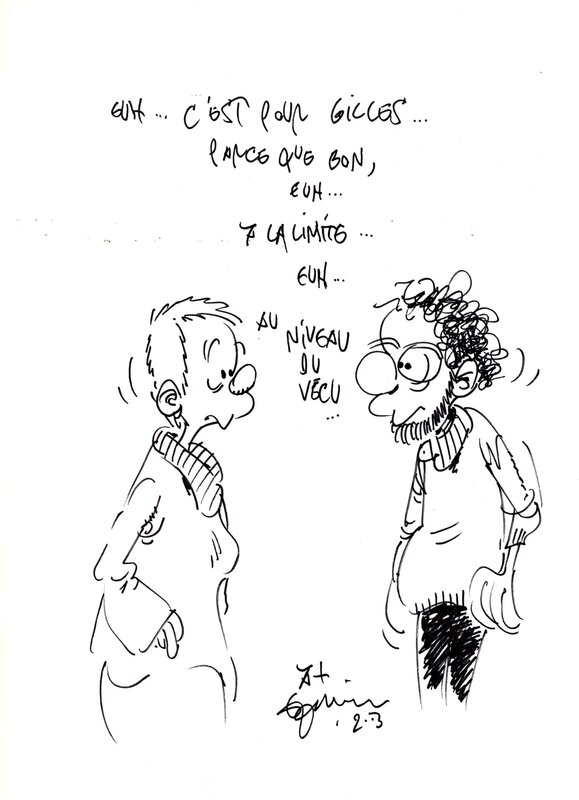 EUH... C'EST POUR GILLES...
PARCE QUE BON,
EUH...
A LA LIMITE...
EUH...
AU NIVEAU
DU
VÉCU
...
A+
2..3